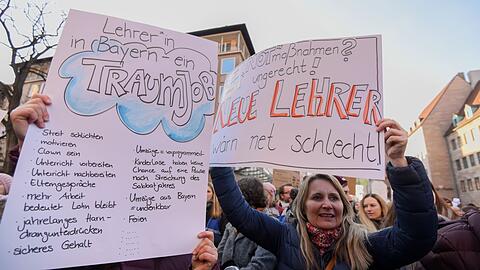 Lehrer*in
in Bayern - ein
TRAUMJOB
Streit schlichten
motivieren
Clown sein
Unterricht vorbereiten
Unterricht nachbereiten
Elterngespräche
mehr Arbeit
bedeutet Lohn bleibt
jahrelanges Harn-
drangunterdrücken
sicheres Gehalt
Umzüge vorprogrammiert
Kinderlose haben keine
Chance auf eine Pause
nach Streichung des
Sabbatjahres
Umzüge aus Bayern
undenkbar
Ferien
maßnahmen?
ungerecht!
NEUE LEHRER
wärn net schlecht!